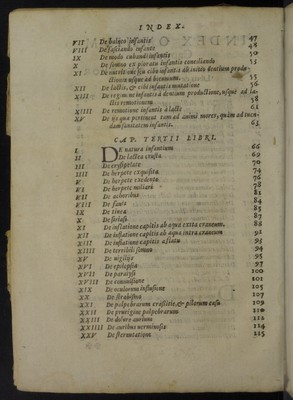 INDEX.
VII De balneo infantis 47
VIII De fasciando infante 48
IX De modo cubandi infantis 50
X De somno ex ploratu infantis conciliando 51
XI De victu infantis ab initio dentium produ-
ctionis usque ad 55
XII De lactis, & cibi infantis mutatione 56
XIII De regimine infantis a dentium productione, usque ad la-
ctis remotionem 58
XIIII De remotione infantis à lacte 61
XV De iis quae pertinent tam ad animi mores, quàm ad tuen-
dam sanitatem infantis. 63
CAP. TERTII LIBRI.
I DE natura infantium 66
II De lactea crusta 69
III De erysipelate 70
IIII De herpete exquisita 74
V De herpete exedente 76
VI De herpete miliari 78
VII De achoribus 81
VIII De favis 84
IX De tineae 85
X De 87
XI De inflatione capitis ab aqua extra craneum. 88
XII De inflatione capitis ab aqua intra craneum 91
XIII De inflatione capitis à flatu 93
XIIII De terribili somno 94
XV De vigiliis 95
XVI De epilepsia 97
XVII De paralysi 100
XVIII De convulsione 101
XIX De oculorum 105
XX De strabismo 107
XXI De palpebrarum crassitie, & pilorum casu 109
XXII De prurigine palpebrarum 110
XXIII De dolore aurium 112
XXIIII De auribus verminosis 114
XXV De sternutatione 115